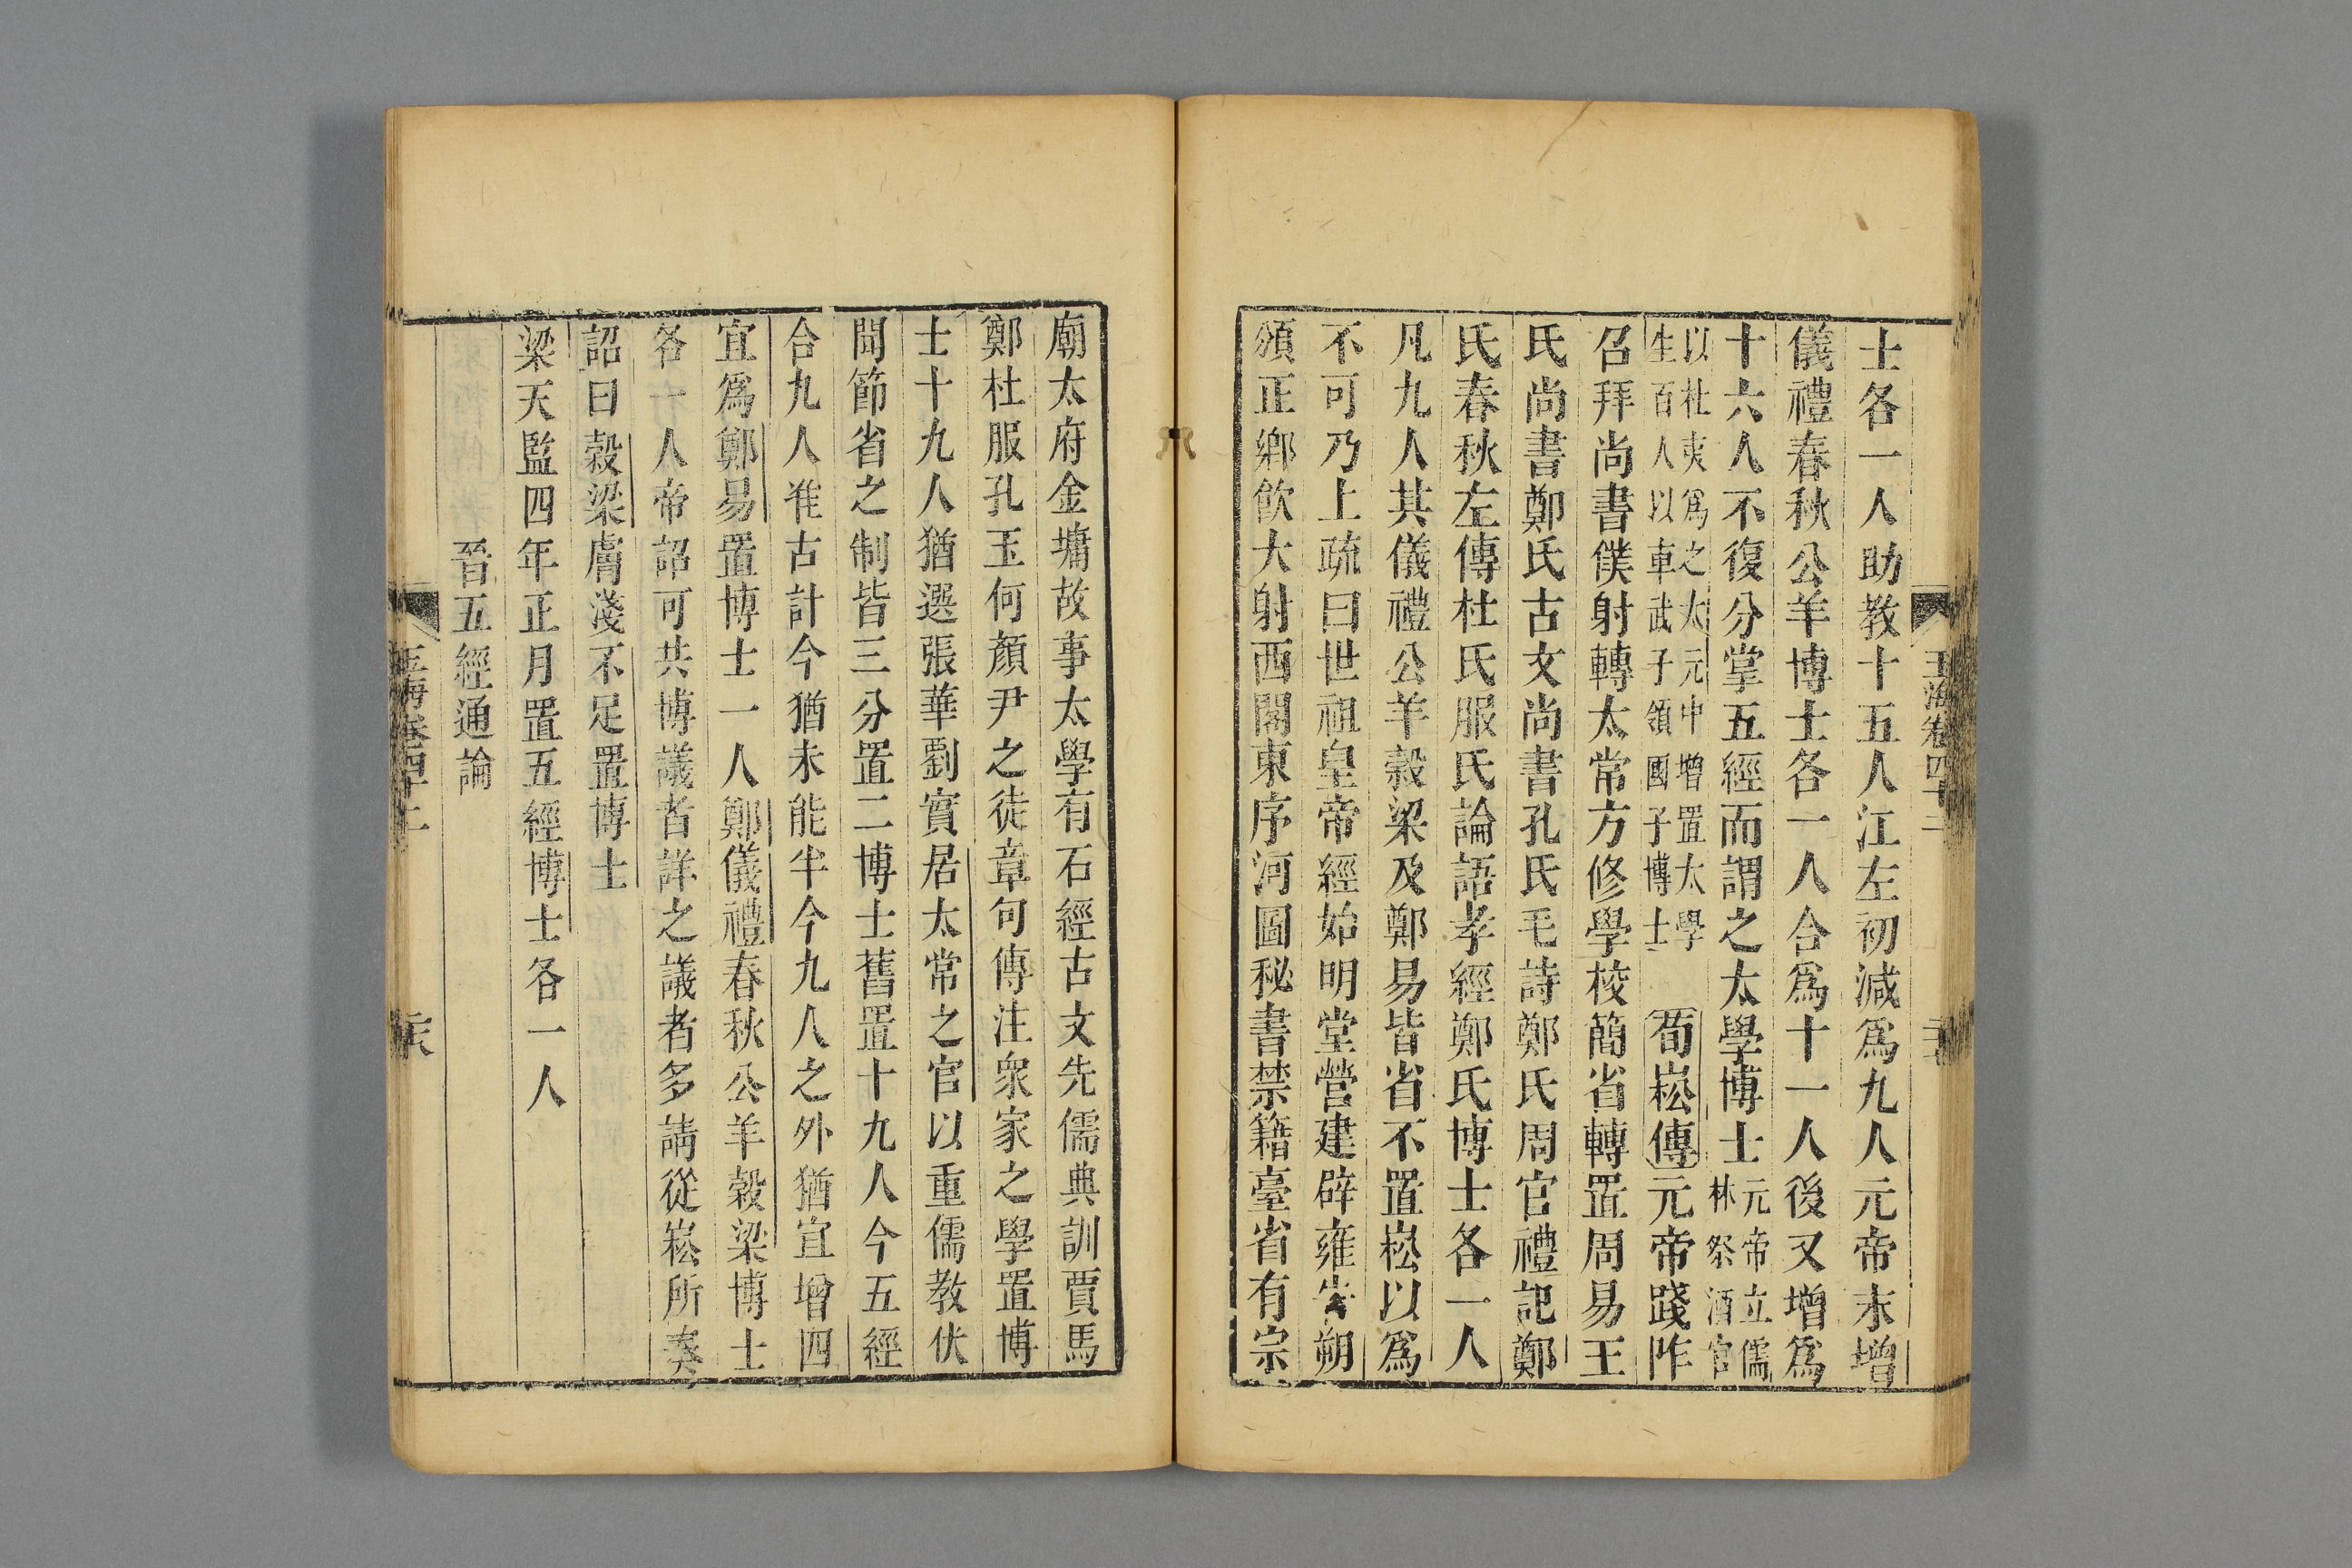 士各一人助教十五人江左初減爲九人元帝末增
儀禮春秋公羊博士各一人合爲十一人後又增爲
十六人不復分掌五經而謂之太學博士元帝立儒林祭酒官
以杜夷爲之太元中增置太學生百人以車武子領國子博士荀崧傳元帝踐阼
召拜尚書僕射轉太常方修學校簡省轉置周易王
氏尚書鄭氏古文尚書孔氏毛詩鄭氏周官禮記鄭
氏春秋左傳杜氏服氏論語孝經鄭氏博士各一人
凡九人其儀禮公羊穀梁及鄭易皆省不置崧以爲
不可乃上疏曰世祖皇帝經始明堂營建辟雍告朔
頒正鄉飲大射西閣東序河圖秘書禁籍臺省有宗
玉海卷四十二
廟太府金墉故事太學有石經古文先儒典訓賈馬
鄭杜服孔王何顏尹之徒章句傳注衆家之學置博
士十九人猶選張華劉實居太常之官以重儒教伏
聞節省之制皆三分置二博士舊置十九人今五經
合九人准古計今猶未能半今九人之外猶宜增四
宜爲鄭易置博士一人鄭儀禮春秋公羊穀梁博士
各一人帝詔可共博議者詳之議者多請從崧所奏
詔曰穀梁膚淺不足置博士
梁天監四年正月置五經博士各一人
晉五經通論
玉海卷四十二